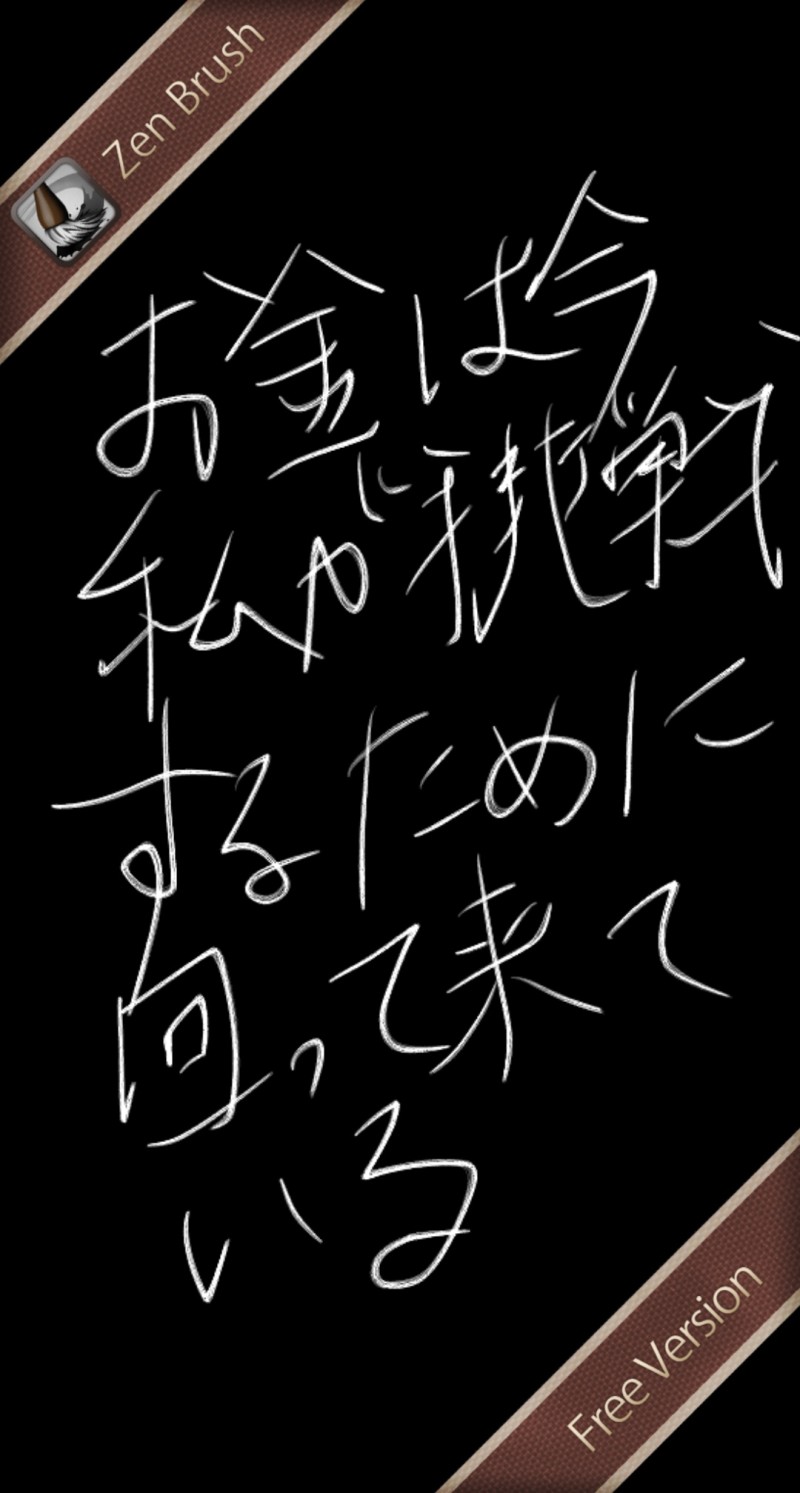 Zen Brush
お金は今、
私が挑戦
するために
回って来て
いる
Free Version